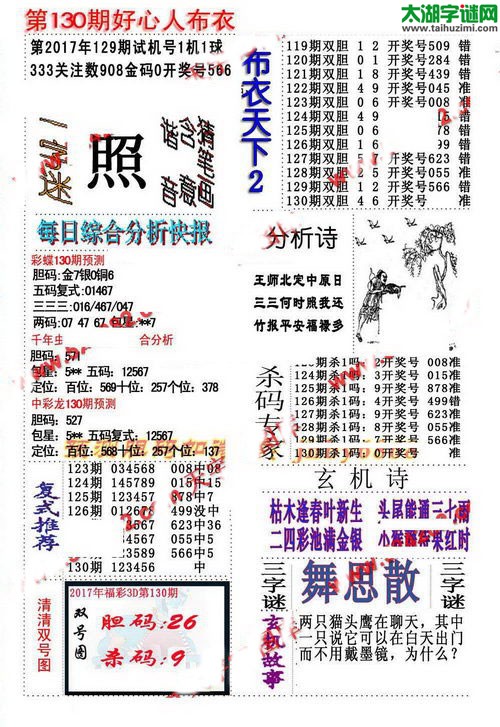 第130期好心人布衣
太湖字谜网
www.taihuzimi.com
第2017年129期试机号1机1球
333关注数908金码0开奖号566
照
每日综合分析快报
彩蝶130期预测
胆码:金7银0铜6
五码复式:01467
三三三:016/467/047
两码:07 47 67 包星:**7
千年虫
合分析
胆码: 571
包星: 5** 五码: 12567
定位: 百位: 569十位: 257个位: 378
中彩龙130期预测
胆码: 527
包星: 5** 五码复式: 12567
定位: 百位: 568十位: 257个位: 137
复式推荐
123期 034568 008中08
124期 145789 015中15
125期 123457 878中7
126期 012678 499没中
567 623中36
567 055中5
567 566中56
130期 123456 中
清清双号图
2017年福彩3D第130期
双号图
胆码: 26
杀码: 9
布衣天下2
119期双胆 1 2 开奖号509 错
120期双胆 0 1 开奖号284 错
121期双胆 0 6 开奖号439 错
122期双胆 0 4 开奖号045 准
123期双胆 0 6 开奖号008 准
124期双胆 4 9
125期双胆
126期双胆
127期双胆 5 7 开奖号623 错
128期双胆 2 5 开奖号055 准
129期双胆 1 2 开奖号566 错
130期双胆 4 6 开奖号 错
分析诗
王师北定中原日
三三何时照我还
竹报平安福禄多
杀码专家
123期杀1吗: 2开奖号 008准
124期杀1吗: 3开奖号 015准
125期杀1吗: 9开奖号 878准
126期杀1吗: 4开奖号 499错
127期杀1吗: 1开奖号 623准
128期杀1吗: 7开奖号 055准
129期杀1吗: 9开奖号 566准
130期杀1吗: 0开奖号 准
玄机诗
枯木逢春叶新生 头尾能通二七雨
二四彩池满金银
三字谜
舞思散
三字谜
玄机故事
两只猫头鹰在聊天，其中
一只说它可以在白天出门
而不用戴墨镜，为什么?